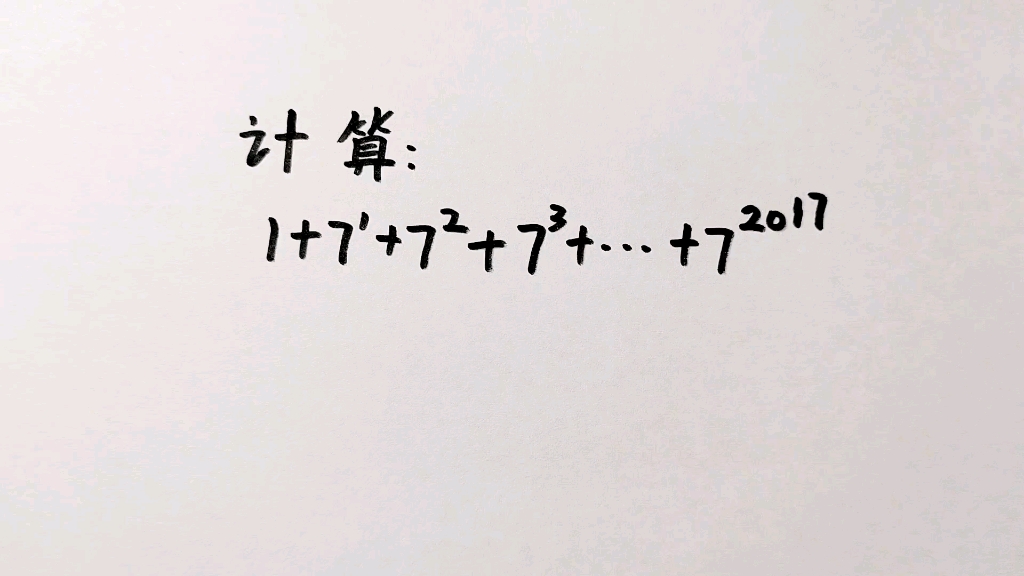 计算:
1+7¹+7²+7³+⋯+7²⁰¹⁷